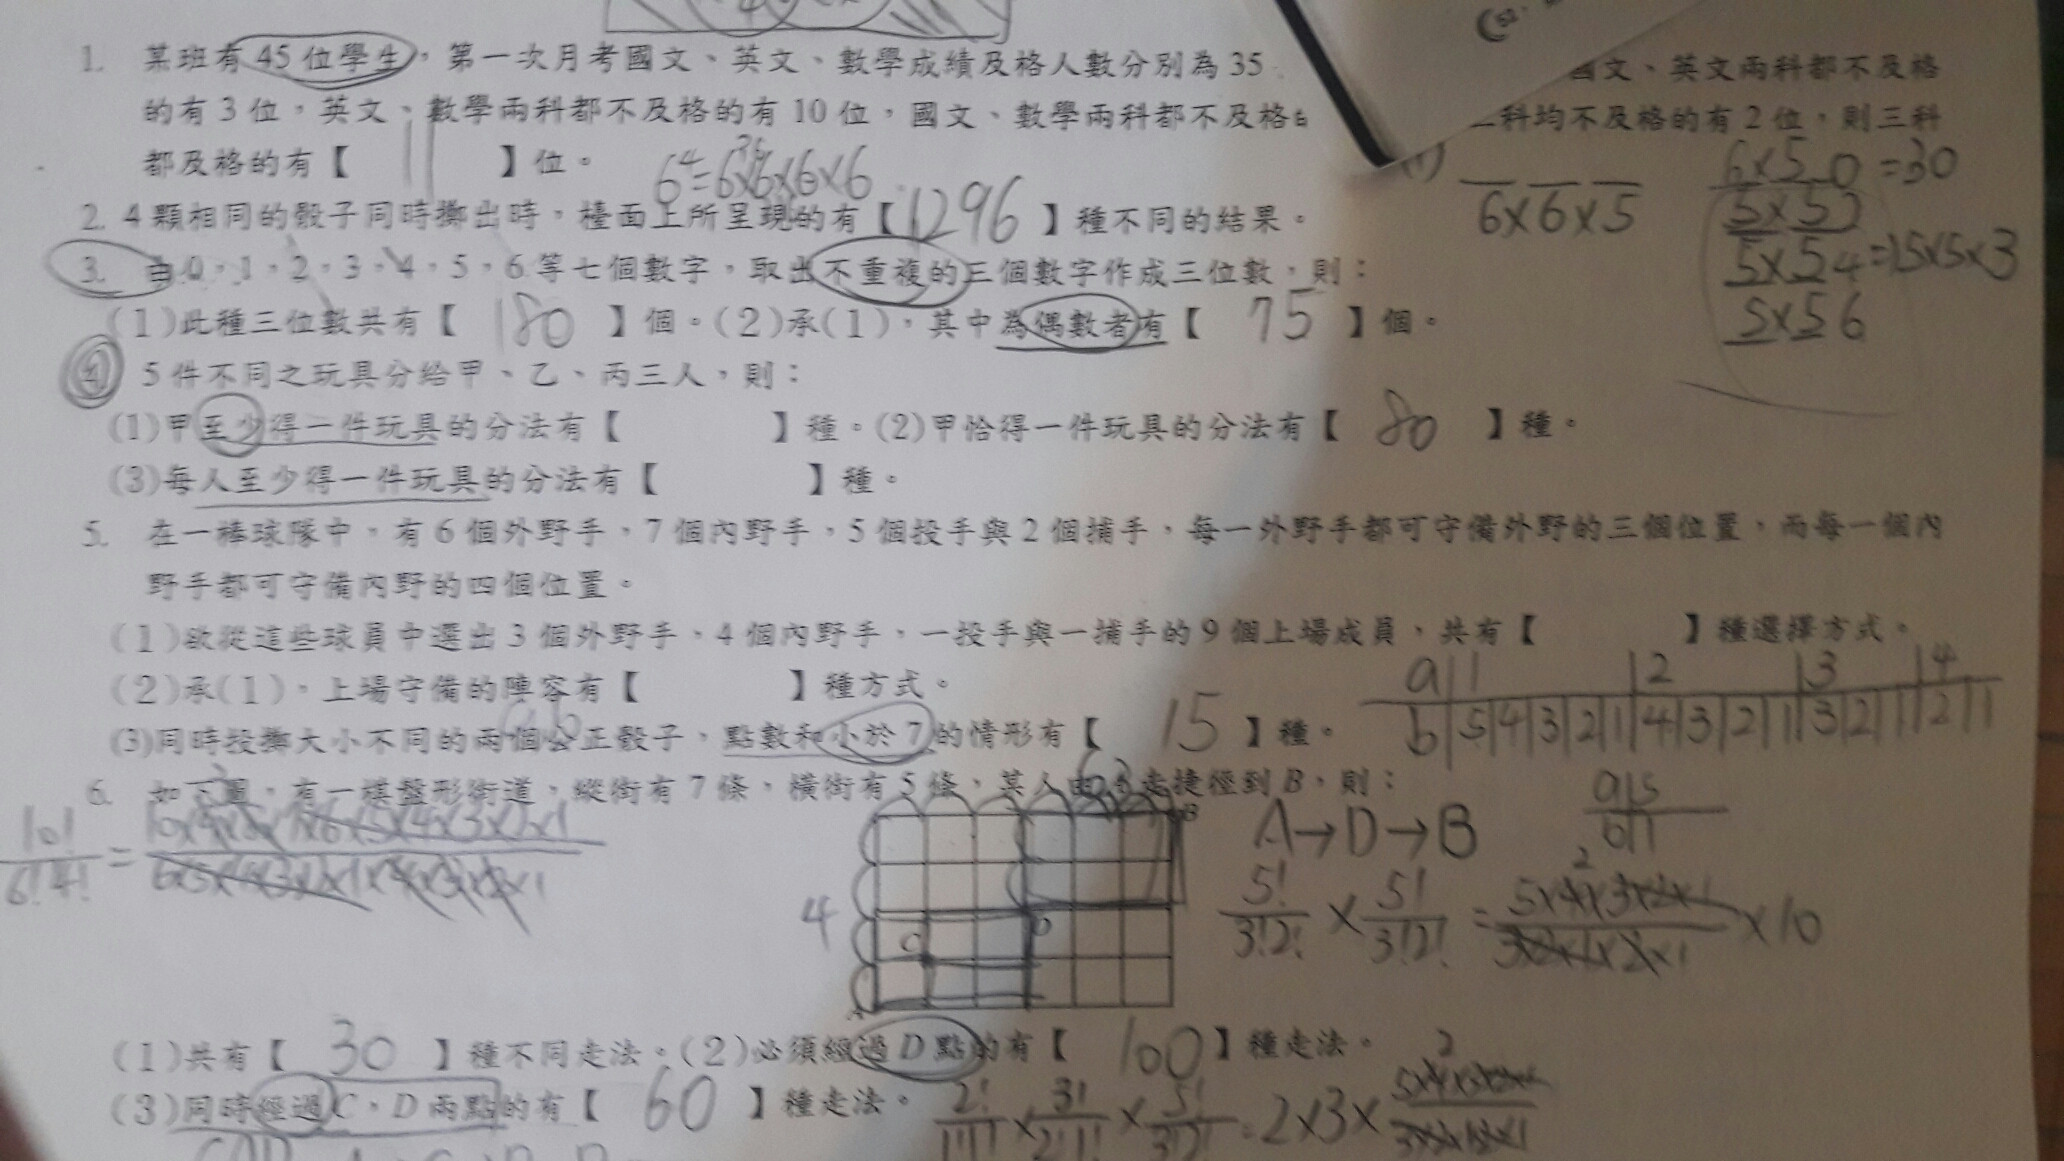 1. 某班有 45 位學生，第一次月考國文、英文、數學成績及格人數分別為 35 國文、英文兩科都不及格
的有 3 位，英文、數學兩科都不及格的有 10 位，國文、數學兩科都不及格 科均不及格的有 2 位，則三科
都及格的有【 11 】位。
6⁴=6×6×6×6
36
2. 4 顆相同的骰子同時擲出時，檯面上所呈現的有【 1296 】種不同的結果。
(1)
6×6×5
6×5 0 =30
5×5 2
5×5 4 =15×5×3
5×5 6
3. 由 0，1，2，3，4，5，6 等七個數字，取出不重複的三個數字作成三位數，則：
(1)此種三位數共有【 180 】個。(2)承(1)，其中為偶數者有【 75 】個。
4. 5 件不同之玩具分給甲、乙、丙三人，則：
(1)甲至少得一件玩具的分法有【 】種。(2)甲恰得一件玩具的分法有【 80 】種。
(3)每人至少得一件玩具的分法有【 】種。
5. 在一棒球隊中，有 6 個外野手，7 個內野手，5 個投手與 2 個捕手，每一外野手都可守備外野的三個位置，而每一個內
野手都可守備內野的四個位置。
(1)欲從這些球員中選出 3 個外野手，4 個內野手，一投手與一捕手的 9 個上場成員，共有【 】種選擇方式。
(2)承(1)，上場守備的陣容有【 】種方式。
(3)同時投擲大小不同的兩個公正骰子，點數和小於 7 的情形有【 15 】種。
a 1 2 3 4
b 5 4 3 2 1 4 3 2 1 3 2 1 2 1
a 5
b 1
6. 如下圖，有一棋盤形街道，縱街有 7 條，橫街有 5 條，某人由 A 走捷徑到 B，則：
10!/6!4! = 10×9×8×7×6×5×4×3×2×1/6×5×4×3×2×1×4×3×2×1
6
B
4
C
D
A
A→D→B
5!/3!2! × 5!/3!2! = 5×4×3×2×1/3×2×1×2×1 ×10
2
(1)共有【 30 】種不同走法。(2)必須經過 D 點的有【 100 】種走法。
(3)同時經過 C，D 兩點的有【 60 】種走法。
2!/1!1! × 3!/2!1! × 5!/3!2! = 2×3× 5×4×3×2×1/3×2×1×2×1
2